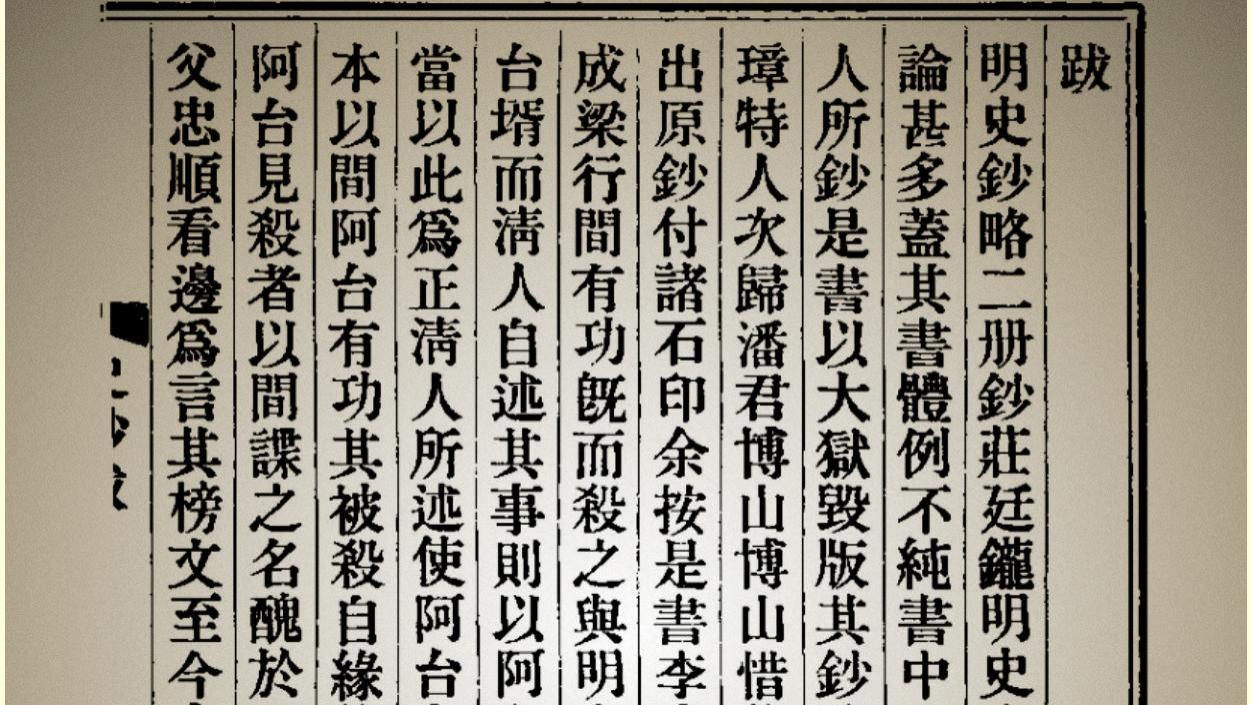 跋
明史鈔略二册鈔莊廷鑨明史
論甚多蓋其書體例不純書中
人所鈔是書以大獄毀版其鈔
璋特人次歸潘君博山博山惜
出原鈔付諸石印余按是書李
成梁行間有功旣而殺之與明
台壻而淸人自述其事則以阿
當以此爲正淸人所述使阿台
本以間阿台有功其被殺自緣
阿台見殺者以間諜之名醜於
父忠順看邊爲言其榜文至今